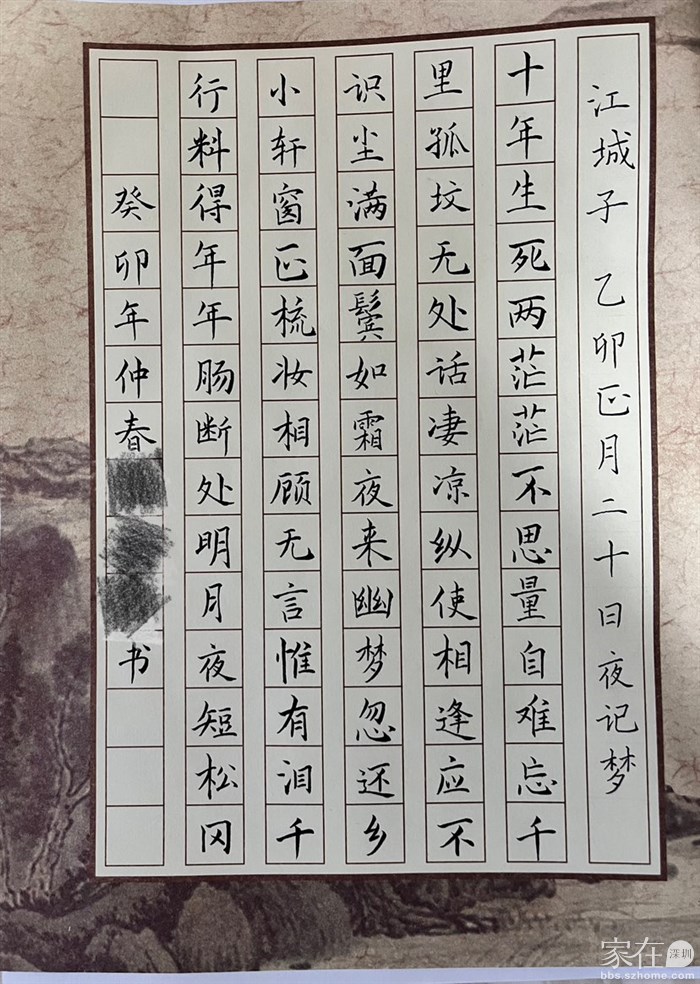 江城子 乙卯正月二十日夜记梦
十年生死两茫茫不思量自难忘千
里孤坟无处话凄凉纵使相逢应不
识尘满面鬓如霜夜来幽梦忽还乡
小轩窗正梳妆相顾无言惟有泪千
行料得年年肠断处明月夜短松冈
癸卯年仲春
书
家在深圳
bbs.szhome.com